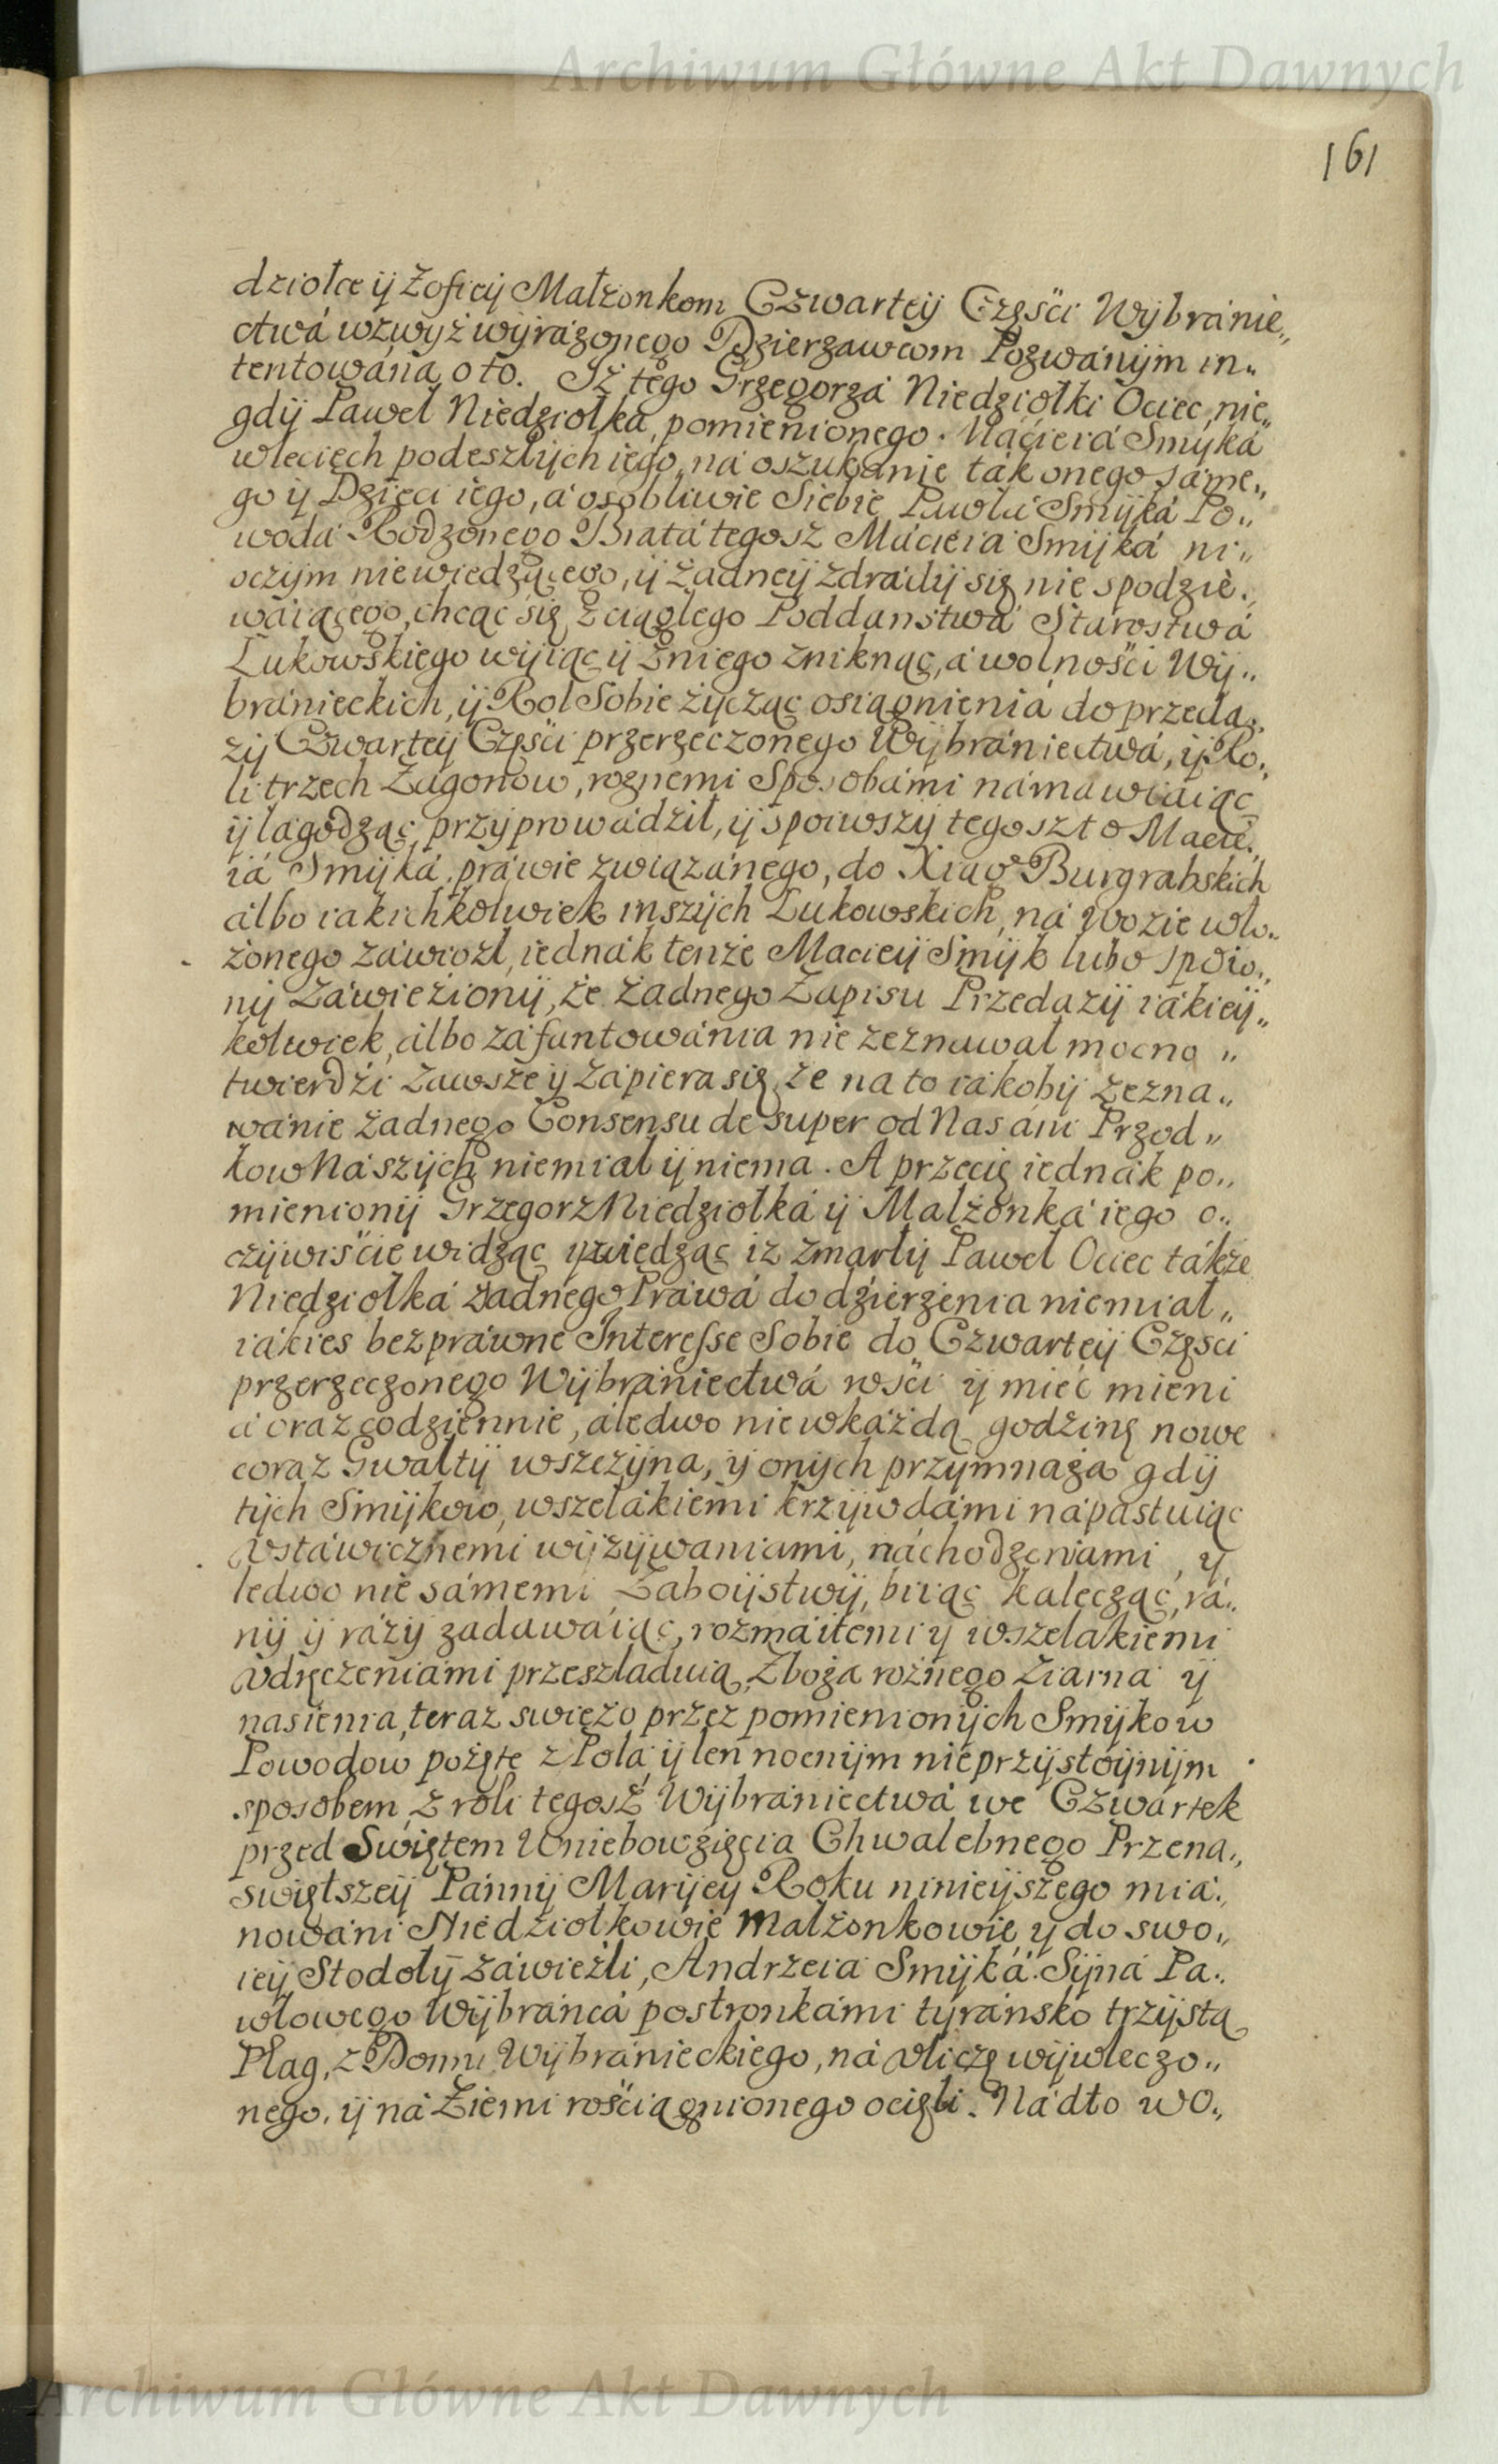 Archiwum Główne Akt Dawnych
161
dziołce ÿ Zoficÿ Małzonkom Czwarteÿ Częsći Wÿbránie„
ctwá wzwyż wÿrażonego Dzierzawcom Pozwánÿm in„
tentowána, o to. Iż tego Grzegorzá Niedziołki Ociec, nie„
gdÿ Paweł Niedziołka, pomienionego Máciejá Smÿká
wleciech podeszłÿch iego, ná oszukánie ták onego sáme„
go ÿ Dzieci iego, á osobliwie Siebie Páwła Smÿká Po„
wodá Rodzonego Bratá tegosz Máciejá Smÿká ni„
oczÿm niewiedzącego, ÿ żadneÿ zdrádÿ się nie spodzie„
wáiącego, chcąc się z ciągłego Poddanstwá Starostwá
Łukowskiego wÿiąc ÿ zniego zniknąc, á wolnośći Wÿ„
bránieckich, ÿ Rol Sobie życząc osiągnieniá do przeda„
zÿ Czwarteÿ Częśći przerzeczonego Wÿbrániectwá, ÿ Ro„
li trzech Zagonow, roznemi Sposobámi námawiáiąc
ÿ łagodząc przÿprowádził, ÿ spoiwszÿ tegoszto Macie„
iá Smÿká, práwie związánego, do Xiąg Burgrabskich
álbo iakichkolwiek inszÿch Łukowskich, ná Wozie wło„
żonego záwiozł, iednák tenże Macieÿ Smÿk lubo spoio„
nÿ Záwieziony, że żadnego Zapisu Przedazÿ iákieÿ„
kolwiek, álbo záfantowánia nie zeznawał mocno „
twierdźi záwsze ÿ zápiera się, że na to iákobÿ zezna„
wánie żadnego Consensu de super od Nas áni Przod„
kow Nászÿch niemiał ÿ niema. A przecię iednák po„
mienionÿ Grzegorz Niedziołká ÿ Małżonká iego o„
czÿwiśćie widząc ÿ wiedząc iz zmarłÿ Paweł Ociec tákże
Niedziołká żadnego Práwá do dzierżenia niemiał „
iákies bezpráwne Interesse Sobie do Czwarteÿ Częsci
przerzeczonego Wÿbrániectwá rośći ÿ mieć mieni
á oraz codziennie, áledwo nie wkażdą godzinę nowe
coraz Gwałtÿ wszczÿna, ÿ onÿch przÿmnaża gdÿ
tÿch Smÿkow, wszelákiemi krzÿwdámi nápastuiąc
Vstáwicznemi wÿzÿwaniami, náchodzeniami, y
ledwo nie sámemi Zaboÿstwÿ, biiąc kalecząc, rá„
nÿ ÿ rázÿ zadawáiąc, rozmáitemi y wszelákiemi
Vdręczeniámi przeszladuią, Zboża roznego ziarna ÿ
nasienia, teraz swieżo przez pomienionÿch Smÿkow
Powodow pożęte z Pola, ÿ len nocnÿm nieprzÿstoÿnÿm
sposobem, z roli tegosż Wÿbrániectwá we Czwártek
przed Swiętem Wniebowzięcia Chwalebnego Przena„
swiętszeÿ Pánnÿ Marÿey Roku ninieÿszego mia„
nowáni Niedziołkowie Małżonkowie y do swo„
ieÿ Stodołÿ záwieźli, Andrzeia Smÿká Sÿná Pa„
włowego Wÿbráncá postronkámi tyránsko trzÿstą
Plag, z Domu Wÿbránieckiego, ná Vliczę wÿwleczo„
nego, ÿ ná Ziemi rośćiągnionego ocięli. Nádto wo„
Archiwum Główne Akt Dawnych